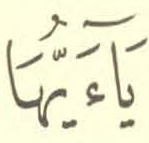 يَآءَيُّهَا